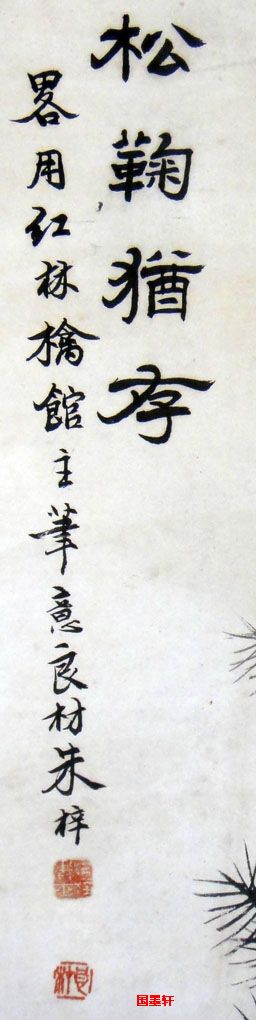 松鞠猶存
畧用红林檎館主筆意良材朱梓
国墨轩